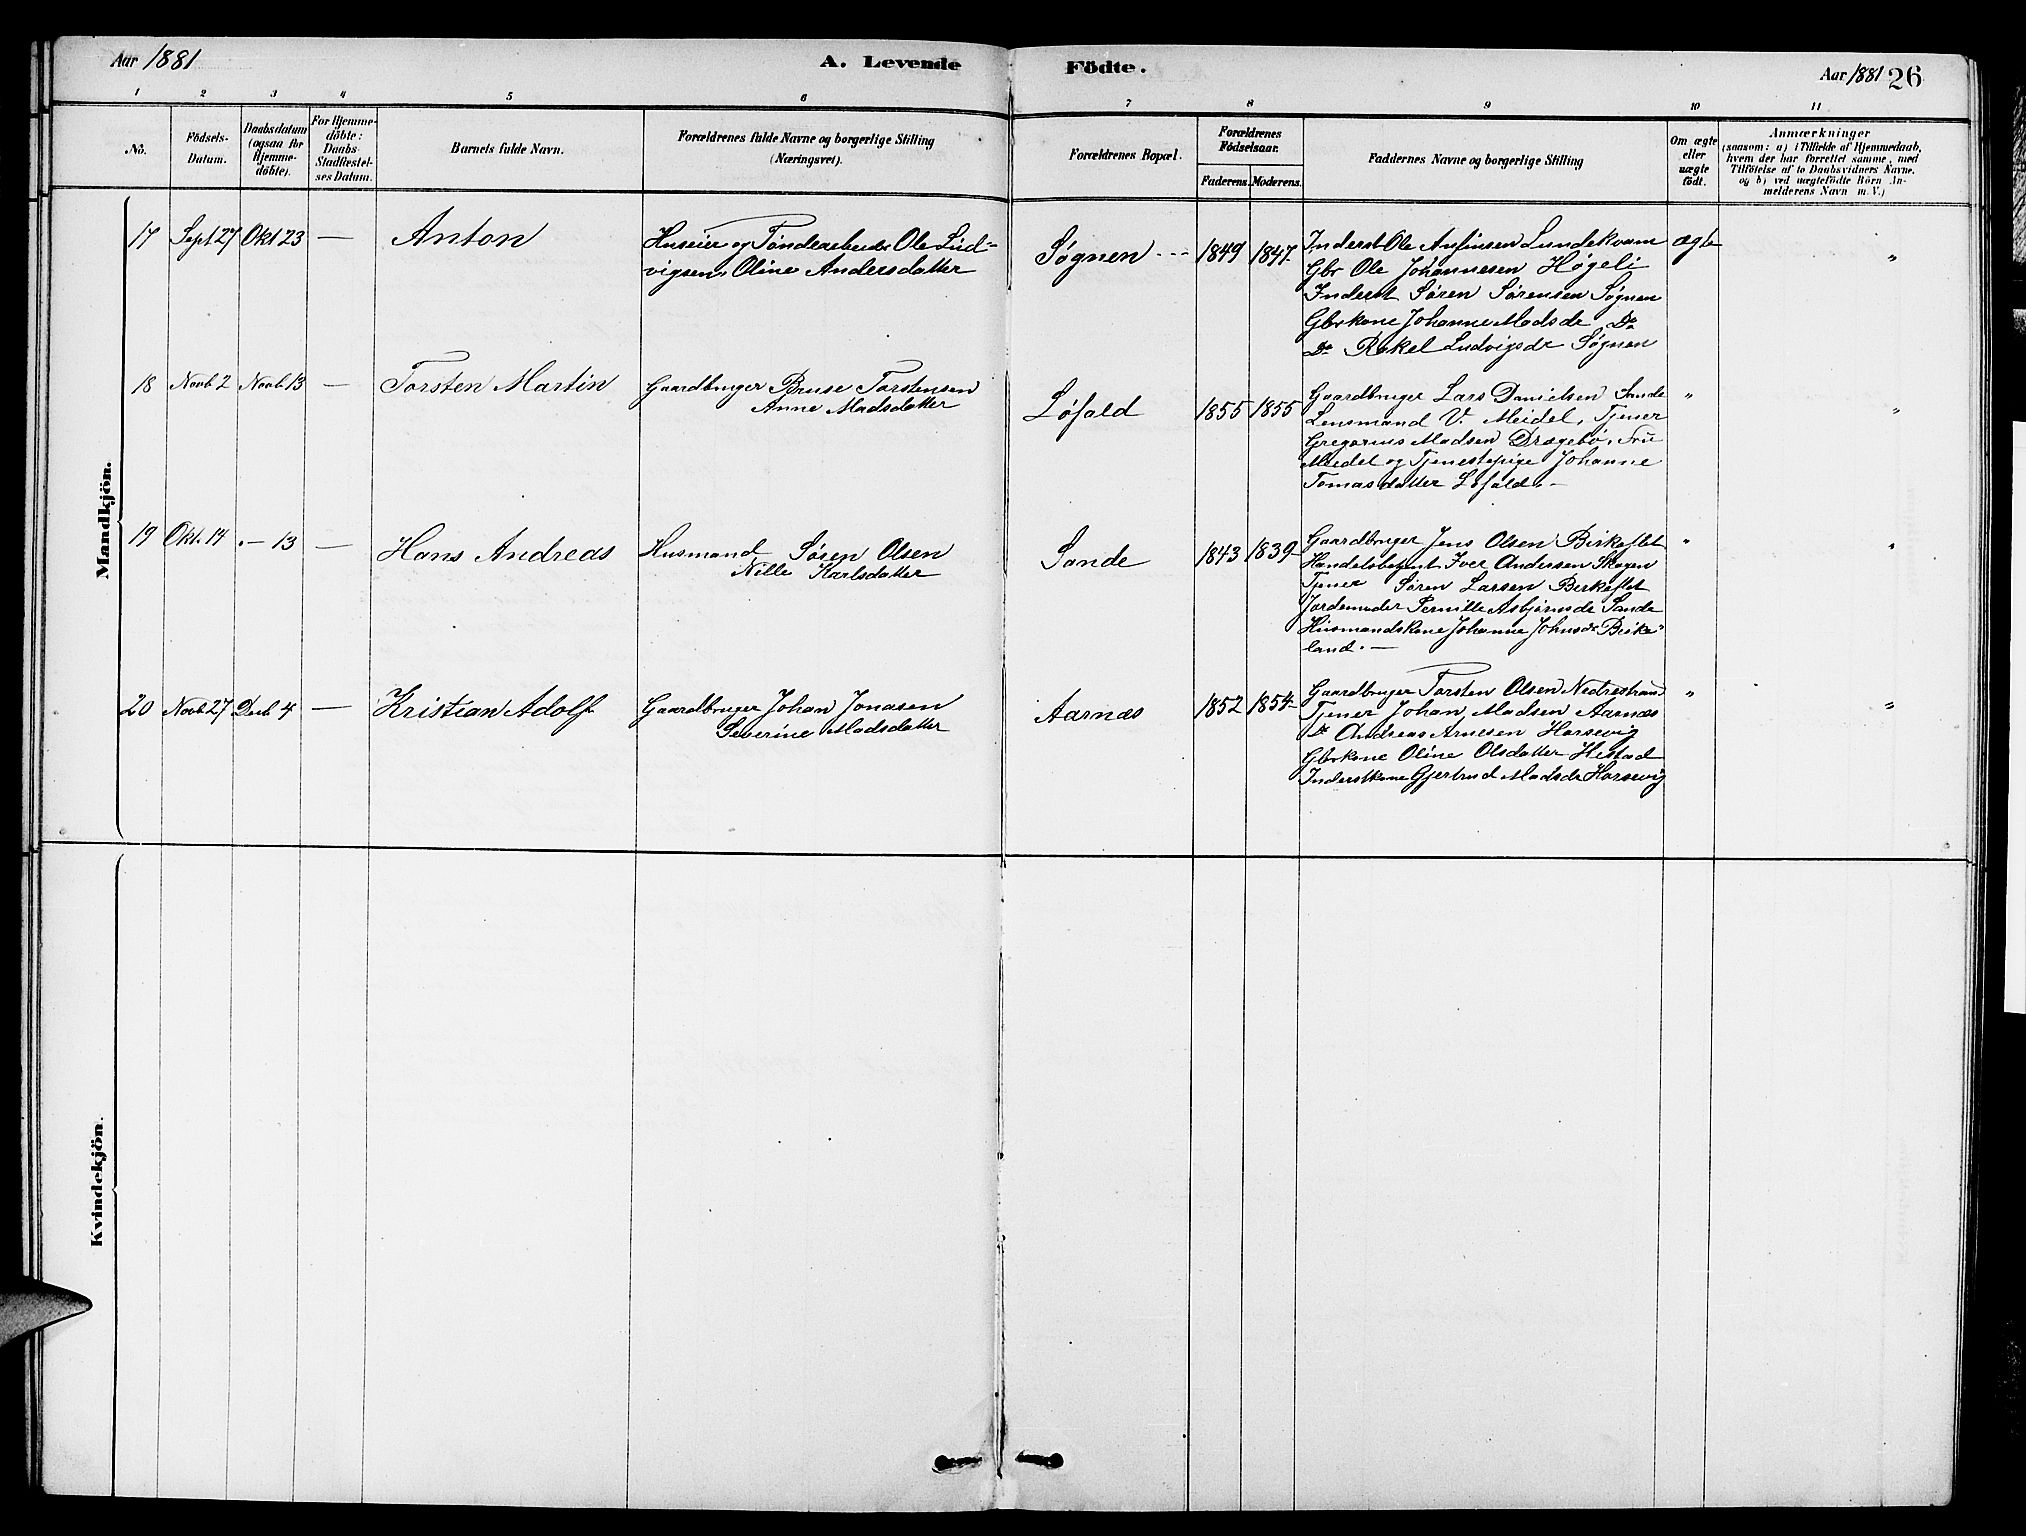 Aar 1881
A. Levende Födte.
Aar 1881 26
1 2 3 4 5 6 7 8 9 10 11
No.
Födsels-Datum.
Daabsdatum (ogsaa for Hjemme-döbte).
For Hjemme-döbte: Daabs-Stadfæstel-ses Datum.
Barnets fulde Navn.
Forældrenes fulde Navne og borgerlige Stilling (Næringsvei).
Forældrenes Bopæl.
Forældrenes Födselsaar.
Faderens. Moderens.
Faddernes Navne og borgerlige Stilling
Om ægte eller uægte födt.
Anmærkninger
(saasom: a) i Tilfælde af Hjemmedaab,
hvem der har forrettet samme, med
Tilföielse af to Daabsvidners Navne,
og b) ved uægtefödte Börn An-
melderens Navn m. V.)
Mandkjön.
17 Sept 27 Okt 23 — Anton
Huseier og Tøndearbeider Ole Lud-
vigsen, Oline Andersdatter
Søgnen 1849 1847
Inderst Ole Anfinsen Lundekvam
Gbr Ole Johannesen Høgeli
Inderst Søren Sørensen Søgnen
Gbrkone Johanne Madsdr Do
Do Rakel Ludvigsdr Søgnen
ægte "
18 Novb 2 Novb 13 — Torsten Martin
Gaardbruger Bruse Torstensen
Anne Madsdatter
Løfald 1855 1855
Gaardbruger Lars Danielsen Sande
Lensmand V. Meidel, Tjener
Gregorius Madsen Drægebø, Fru
Meidel og Tjenestepige Johanne
Tomasdatter Løfald. —
" "
19 Okt. 14 . — 13 — Hans Andreas
Husmand Søren Olsen
Nille Karlsdatter
Sande 1843 1839
Gaardbruger Jens Olsen Birkeflet
Handelsbetjent Iver Andersen Skogen
Tjener Søren Larsen Berkeflet
Jordemoder Pernille Asbjørnsdr Sande
Husmandskone Johanne Johnsdr Birke-
land. —
" "
20 Novb 27 Decb 4 — Kristian Adolf
Gaardbruger Johan Jonasen
Severine Madsdatter
Aarnæs 1852 1854
Gaardbruger Torsten Olsen Nedrestrand
Tjener Johan Madsen Aarnæs
Do Andreas Arnesen Horsevig
Gbrkone Oline Olsdatter Hestad
Inderstkone Gjertrud Madsdr Horsevig
" "
Kvindekjön.